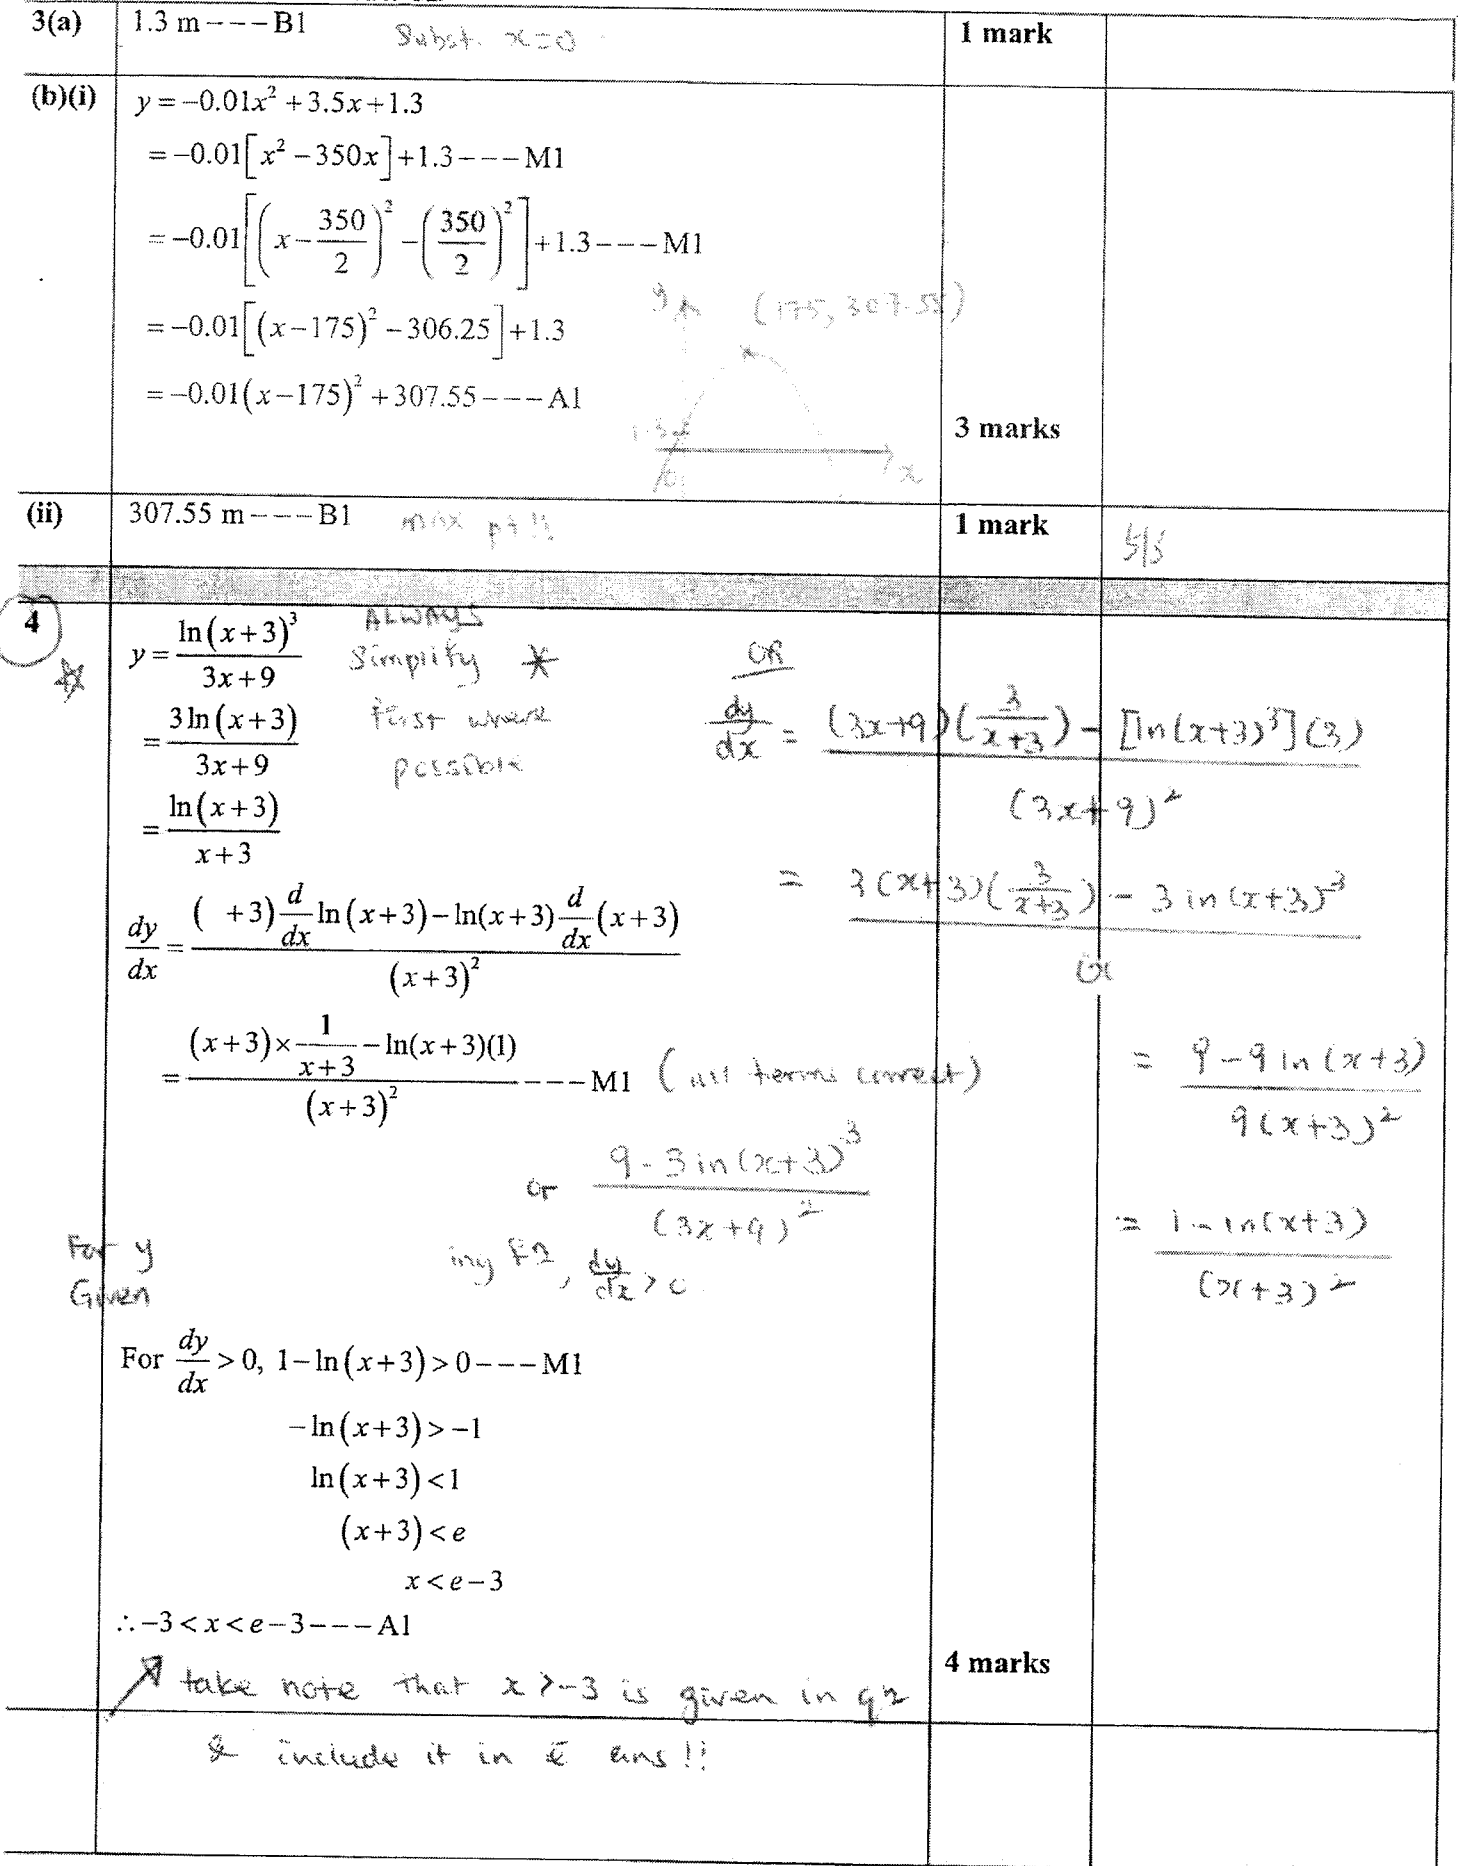 3(a) 1.3 m – – – B1 Subst. x=0 1 mark
(b)(i) y = −0.01x² + 3.5x + 1.3
= −0.01[x² − 350x] + 1.3 – – – M1
= −0.01[(x − 350/2)² − (350/2)²] + 1.3 – – – M1
= −0.01[(x − 175)² − 306.25] + 1.3
= −0.01(x − 175)² + 307.55 – – – A1
y (175, 307.55)
1.3
0 x
3 marks
(ii) 307.55 m – – – B1 max pt!! 1 mark 5/5
4
y = ln(x+3)³ / (3x+9)
= 3ln(x+3) / (3x+9)
= ln(x+3) / (x+3)
ALWAYS
Simplify *
first where
possible
OR
dy/dx = ((3x+9)(3/(x+3)) − [ln(x+3)³](3)) / (3x+9)²
= 3(x+3)(3/(x+3)) − 3 ln(x+3)³
dy/dx = (( +3) d/dx ln(x+3) − ln(x+3) d/dx (x+3)) / (x+3)²
= ((x+3) × 1/(x+3) − ln(x+3)(1)) / (x+3)² – – – – M1 (all terms correct)
= (9 − 9 ln(x+3)) / 9(x+3)²
or (9 − 3 ln(x+3)³) / (3x+9)²
= (1 − ln(x+3)) / (x+3)²
For y
Given
, dy/dx > 0
For dy/dx > 0, 1 − ln(x+3) > 0 – – – M1
−ln(x+3) > −1
ln(x+3) < 1
(x+3) < e
x < e − 3
∴ −3 < x < e − 3 – – – A1
4 marks
take note that x > −3 is given in qn
& include it in ans!!